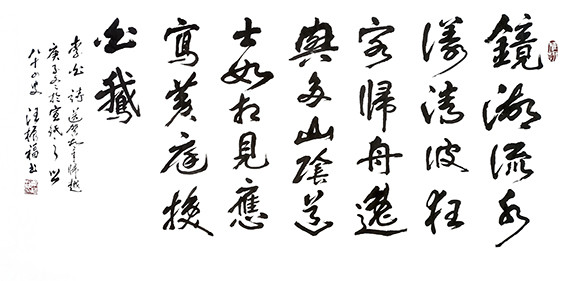 鏡湖流水
漾清波狂
客歸舟逸
興多山陰道
士如相見應
寫黃庭換
白鵝
李白詩送賀知章歸越
庚子冬於
八十四叟 汪 福書